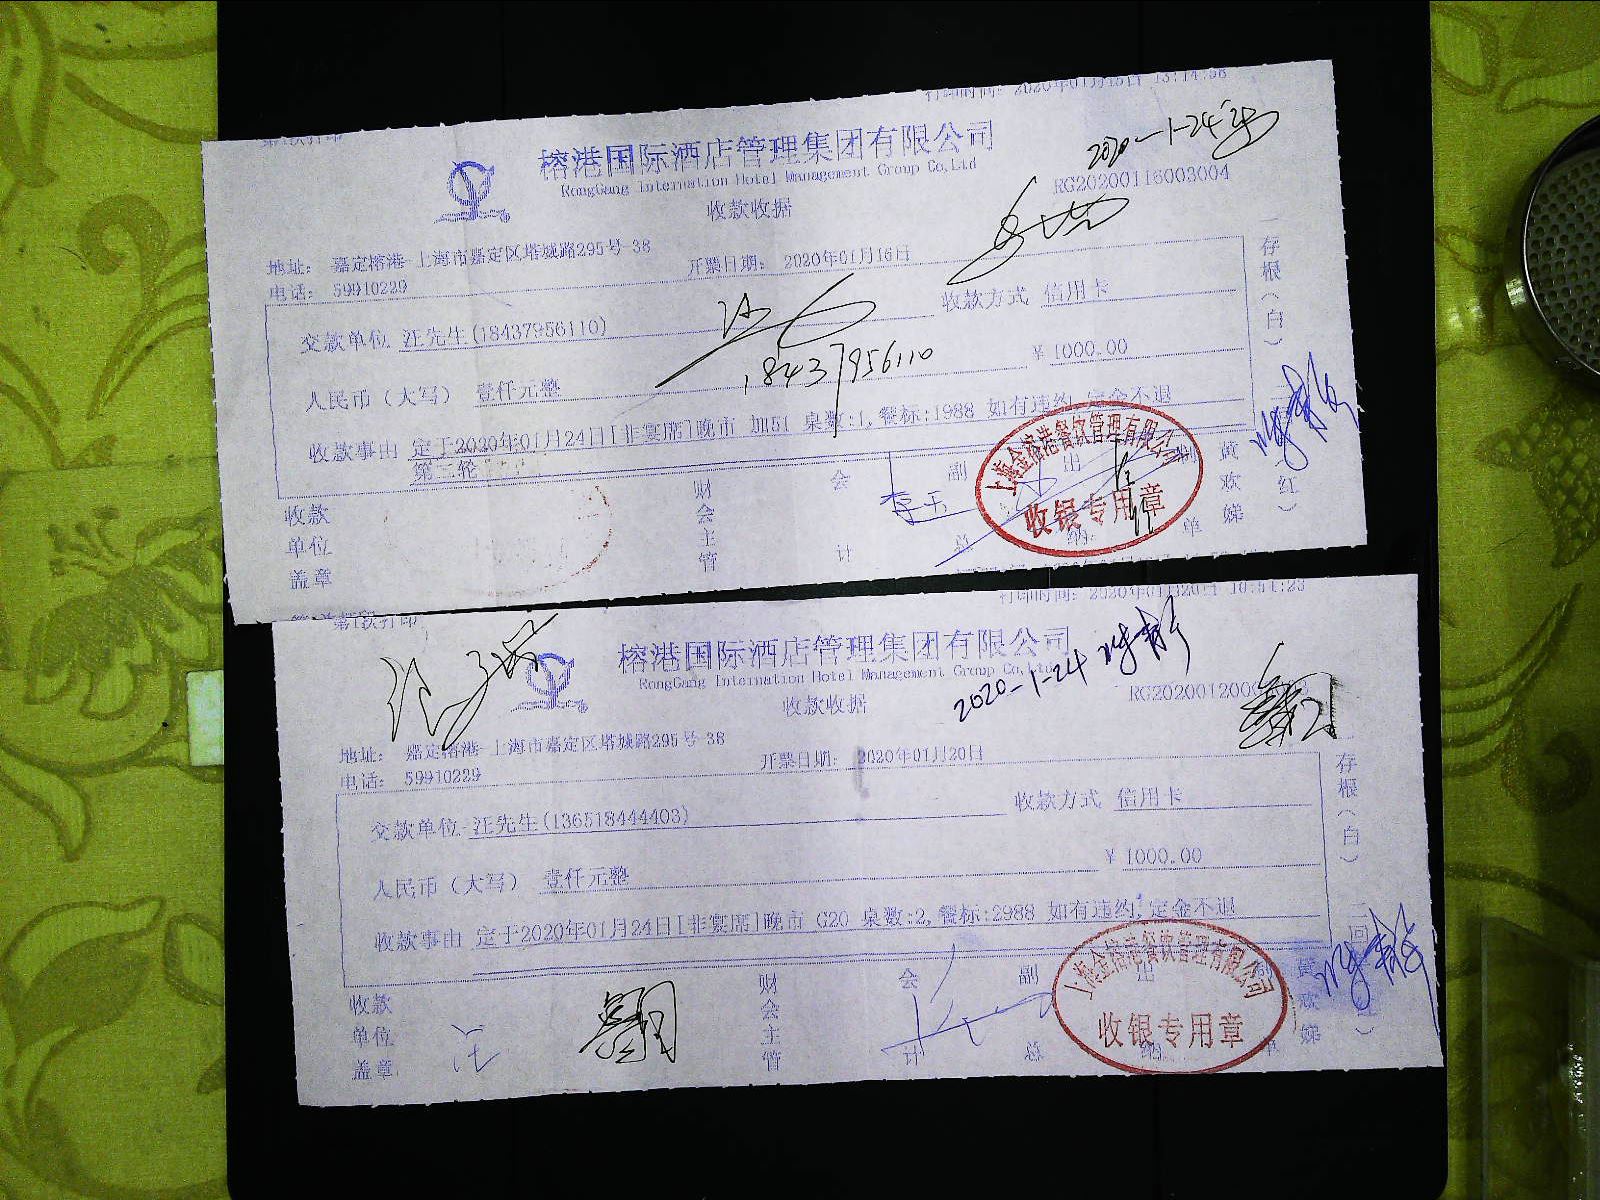 第1次打印
打印时间: 2020年01月16日 13:14:58
榕港国际酒店管理集团有限公司
RongGang Internation Hotel Management Group Co,Ltd
2020-1-24
收款收据
RG20200116003004
地址: 嘉定榕港-上海市嘉定区塔城路295号-38
开票日期: 2020年01月16日
电话: 59910229
交款单位 汪先生(18437956110)
收款方式 信用卡
18437956110
人民币(大写) 壹仟元整
¥ 1000.00
收款事由 定于2020年01月24日[非宴席]晚市 加51 桌数:1,餐标:1988 如有违约,定金不退
第二轮
存根(白)
(红)
收款单位盖章
财会主管
会计
副总
出纳
制单
黄欢娣
上海金榕港餐饮管理有限公司
收银专用章
第1次打印
打印时间: 2020年01月20日
榕港国际酒店管理集团有限公司
RongGang Internation Hotel Management Group Co,Ltd
2020-1-24
收款收据
地址: 嘉定榕港-上海市嘉定区塔城路295号-38
开票日期: 2020年01月20日
电话: 59910229
交款单位 汪先生(136518444403)
收款方式 信用卡
人民币(大写) 壹仟元整
¥ 1000.00
收款事由 定于2020年01月24日[非宴席]晚市 G20 桌数:2,餐标:2988 如有违约,定金不退
存根(白)
收款单位盖章
财会主管
会计
副总
出纳
制单
黄欢娣
上海金榕港餐饮管理有限公司
收银专用章